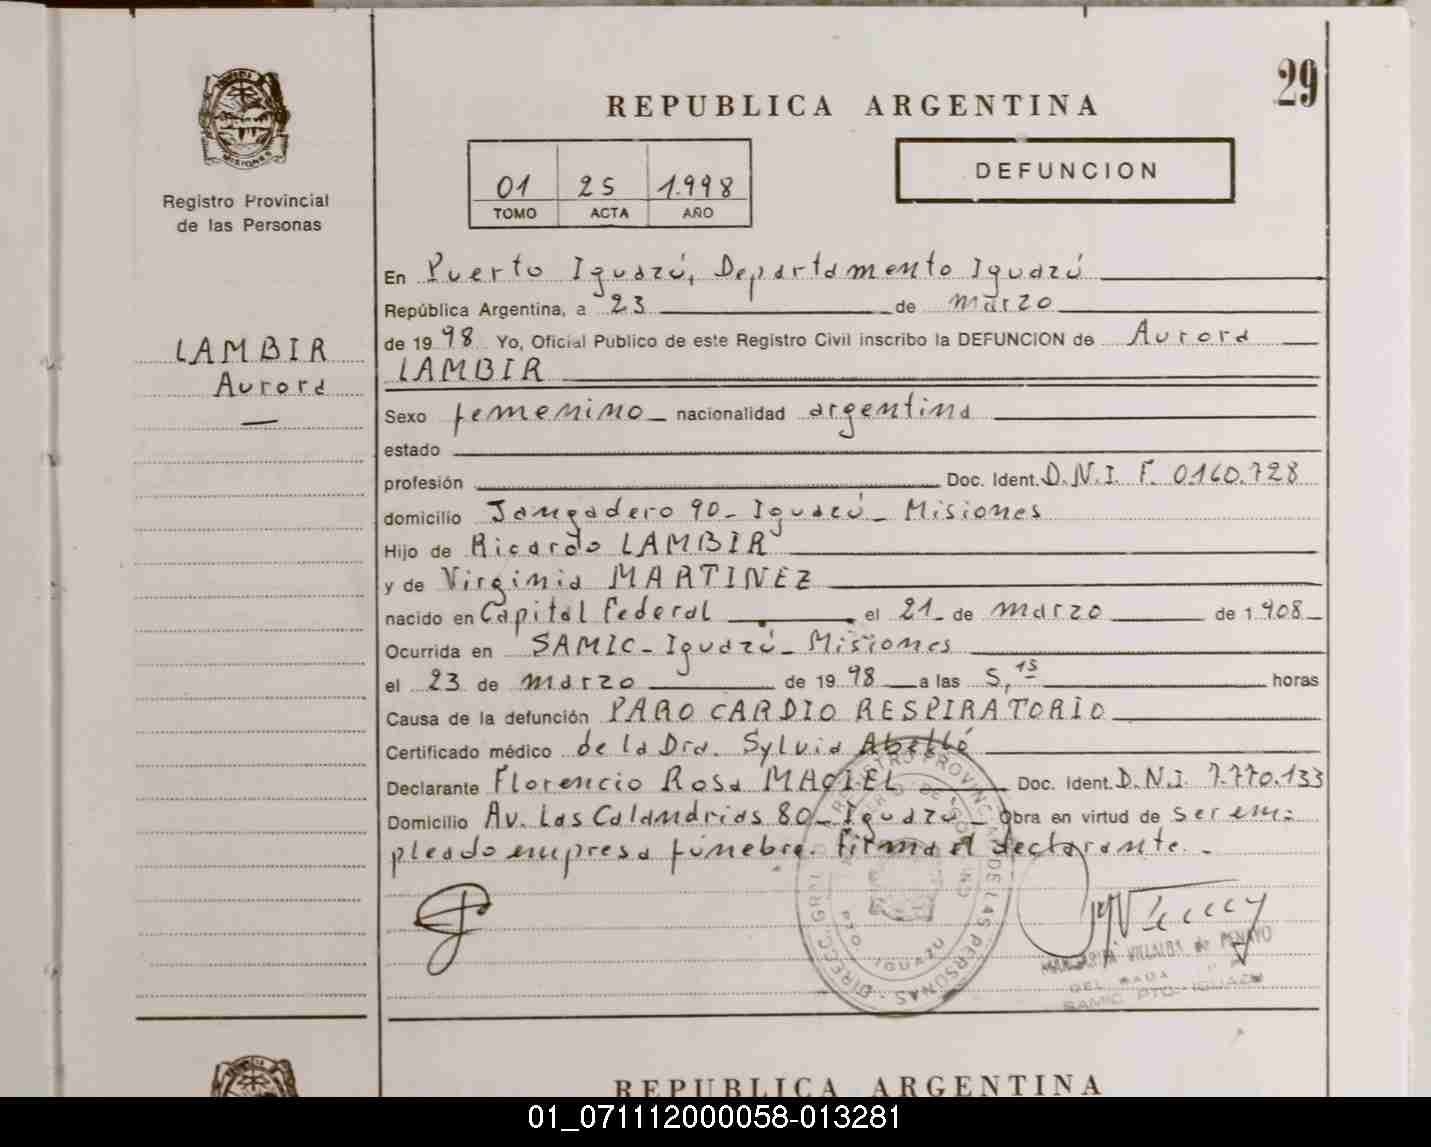 29
REPUBLICA ARGENTINA
MISIONES
Registro Provincial
de las Personas
01 25 1.998
TOMO ACTA AÑO
DEFUNCION
LAMBIR
Aurora
En Puerto Iguazú, Departamento Iguazú
República Argentina, a 23 de marzo
de 1998 Yo, Oficial Publico de este Registro Civil inscribo la DEFUNCION de Aurora
LAMBIR
Sexo femenino nacionalidad argentina
estado
profesión Doc. Ident. D.N.I. F. 0160.728
domicilio Jangadero 90_ Iguazú_ Misiones
Hijo de Ricardo LAMBIR
y de Virginia MARTINEZ
nacido en Capital Federal el 21_ de marzo de 1.908_
Ocurrida en SAMIC_ Iguazú_ Misiones
el 23 de marzo de 1998 a las 5,15 horas
Causa de la defunción PARO CARDIO RESPIRATORIO
Certificado médico de la Dra. Sylvia Abelló
Declarante Florencio Rosa MACIEL Doc. Ident. D.N.I. 7.770.133
Domicilio Av. Las Calandrias 80_ Iguazú_ Obra en virtud de ser em=
pleado empresa fúnebre. Firma el declarante._
DIRECC. GRAL. REGISTRO PROVINCIAL DE LAS PERSONAS
PTO IGUAZU
MARGARITA VILLALBA de PENAYO
SAMIC PTO. IGUAZU
REPUBLICA ARGENTINA
01_071112000058-013281